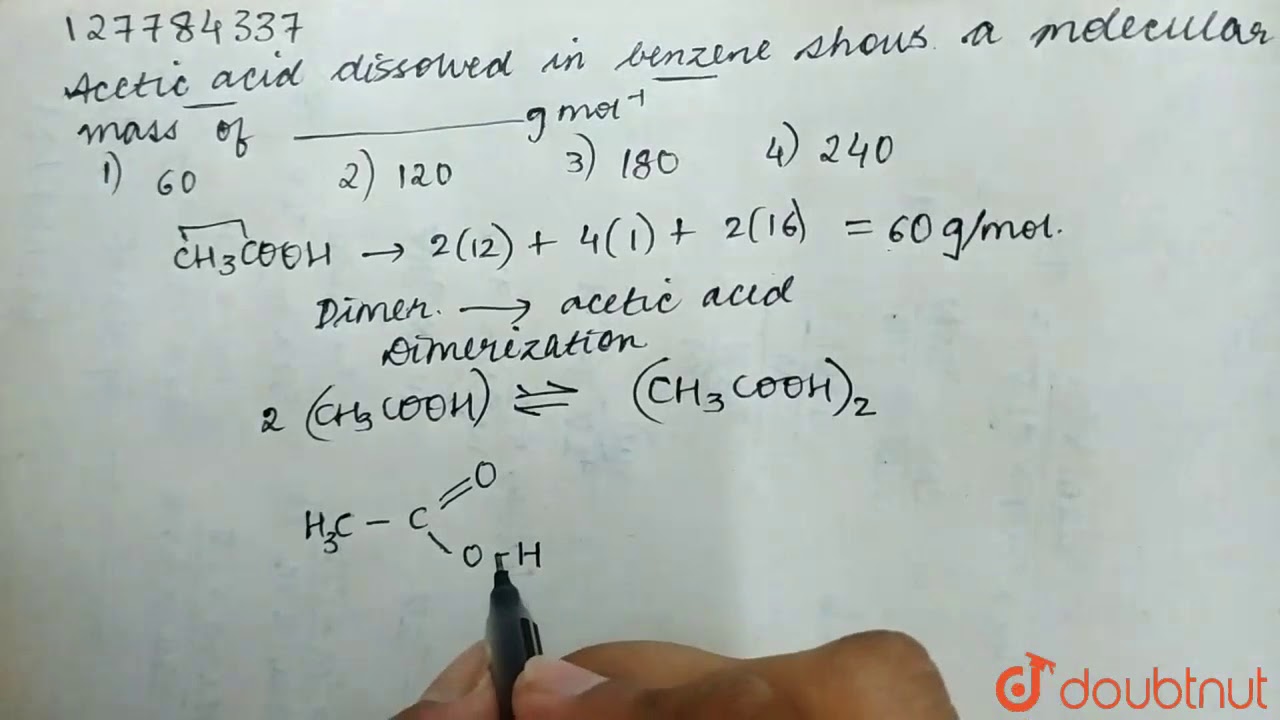 127784337
Acetic acid dissolved in benzene shows a molecular
mass of ____________ g mol⁻¹
1) 60 2) 120 3) 180 4) 240
CH₃COOH → 2(12) + 4(1) + 2(16) = 60 g/mol.
Dimer. → acetic acid
Dimerization
2 (CH₃COOH) ⇌ (CH₃COOH)₂
O
H₃C - C
O - H
doubtnut